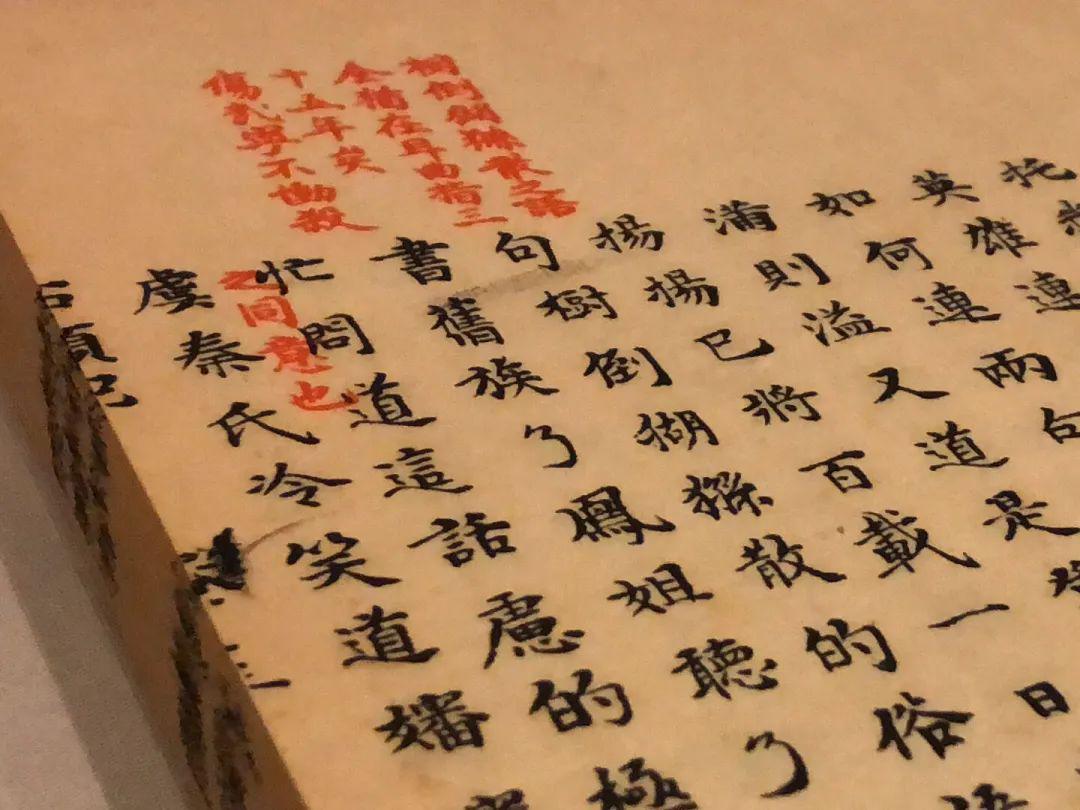 樹倒猢猻散之語
全猶在耳曲指三
十五年矣
傷哉寧不慟殺
之同意也
托
英雄連
如何連兩句
滿則溢又道是
揚揚已將百載一日
句樹倒猢猻散的俗
書舊族了鳳姐聽了
忙問道這話慮的極
虞秦氏冷笑道嬸